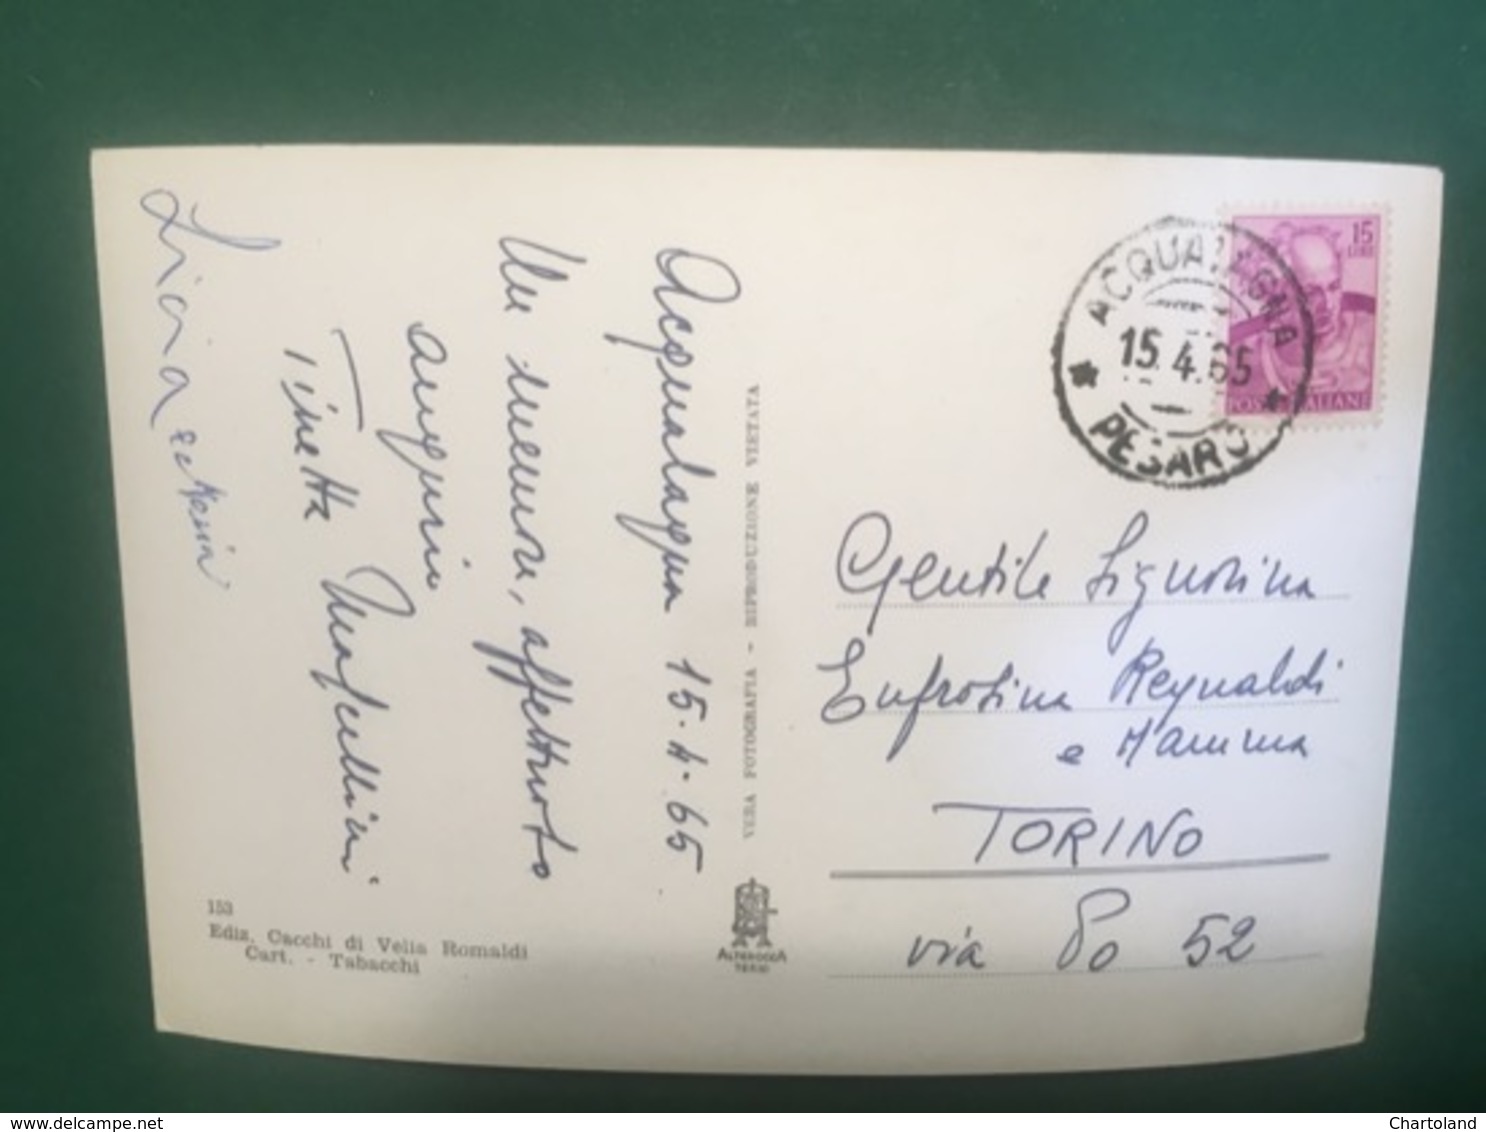 Acqualagna 15.4.65
Un memore, affettuoso
augurio
Tinetta
Liviana
153
Ediz. Cacchi di Velia Romaldi
Cart. - Tabacchi
VERA FOTOGRAFIA - RIPRODUZIONE VIETATA
ALTEROCCA
TERNI
15
LIRE
POSTE ITALIANE
ACQUALAGNA
15.4.65
PESARO
Gentile Signorina
Eufrosina Reynaldi
e Mamma
TORINO
via Po 52
delcampe.net
Chartoland